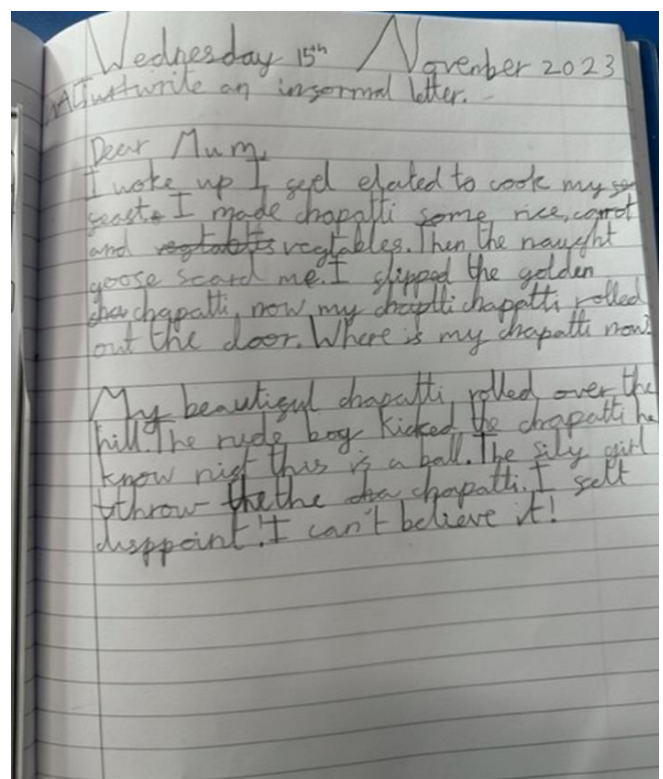 Wednesday 15th November 2023
write an informal letter.
Dear Mum,
I woke up I feel elated to cook my
feast. I made chapatti some rice, carrot
and vegtables. Then the naught
goose scard me. I flipped the golden
chapatti, now my chappatti rolled
out the door. Where is my chapatti now?
My beautiful chapatti rolled over the
hill. The rude boy kicked the chapatti he
know this is a ball. The sily girl
throw the the chapatti. I felt
disppoint! I can't believe it!